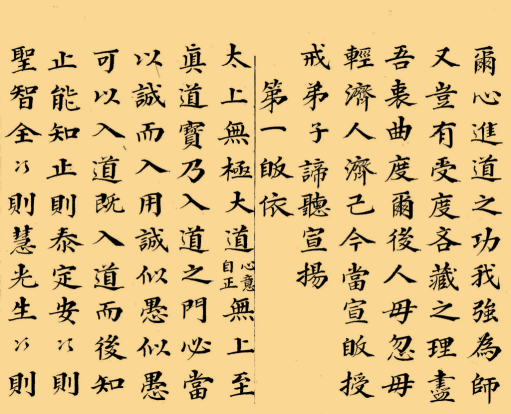 爾心進道之功我強為師
又豈有受度吝藏之理盡
吾衷曲度爾後人毋忽毋
輕濟人濟己今當宣皈授
戒弟子諦聽宣揚
第一皈依
太上無極大道心意自正無上至
真道寶乃入道之門必當
以誠而入用誠似愚似愚
可以入道既入道而後知
止能知止則泰定安〻則
聖智全〻則慧光生〻則